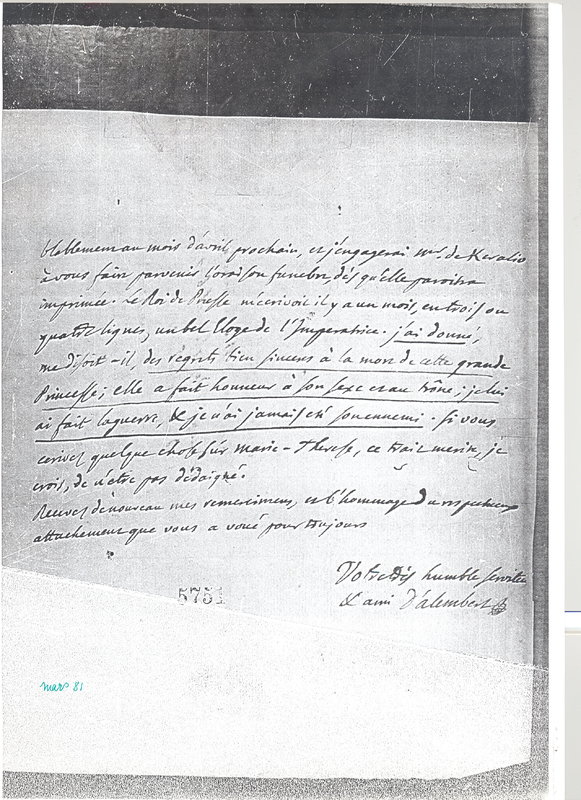 blablement au mois d'avril prochain, et j'engagerai mr. de Keralio
à vous faire parvenir l'oraison funebre, dès qu'elle paroitra
imprimée. Le Roi de Prusse m'écrivoit il y a un mois, en trois ou
quatre lignes, un bel Eloge de l'Imperatrice. j'ai donné,
me disoit-il, des regrets bien sinceres à la mort de cette grande
Princesse; elle a fait honneur à son sexe et au trône; je lui
ai fait la guerre, & je n'ai jamais été son ennemi. Si vous
ecrivez quelque chose sur marie-Therese, ce trait merite, je
crois, de n'etre pas dédaigné.
Recevez de nouveau mes remercimens, et l'hommage du respectueux
attachement que vous a voué pour toujours
Votre très humble serviteur
& ami D'alembert
5751
mars 81